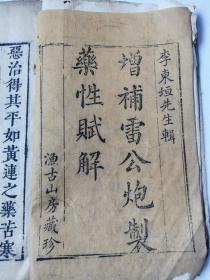 李東垣先生輯
增補雷公炮製
藥性賦解
漁古山房藏珍
惡治得其平如黃連之藥苦寒